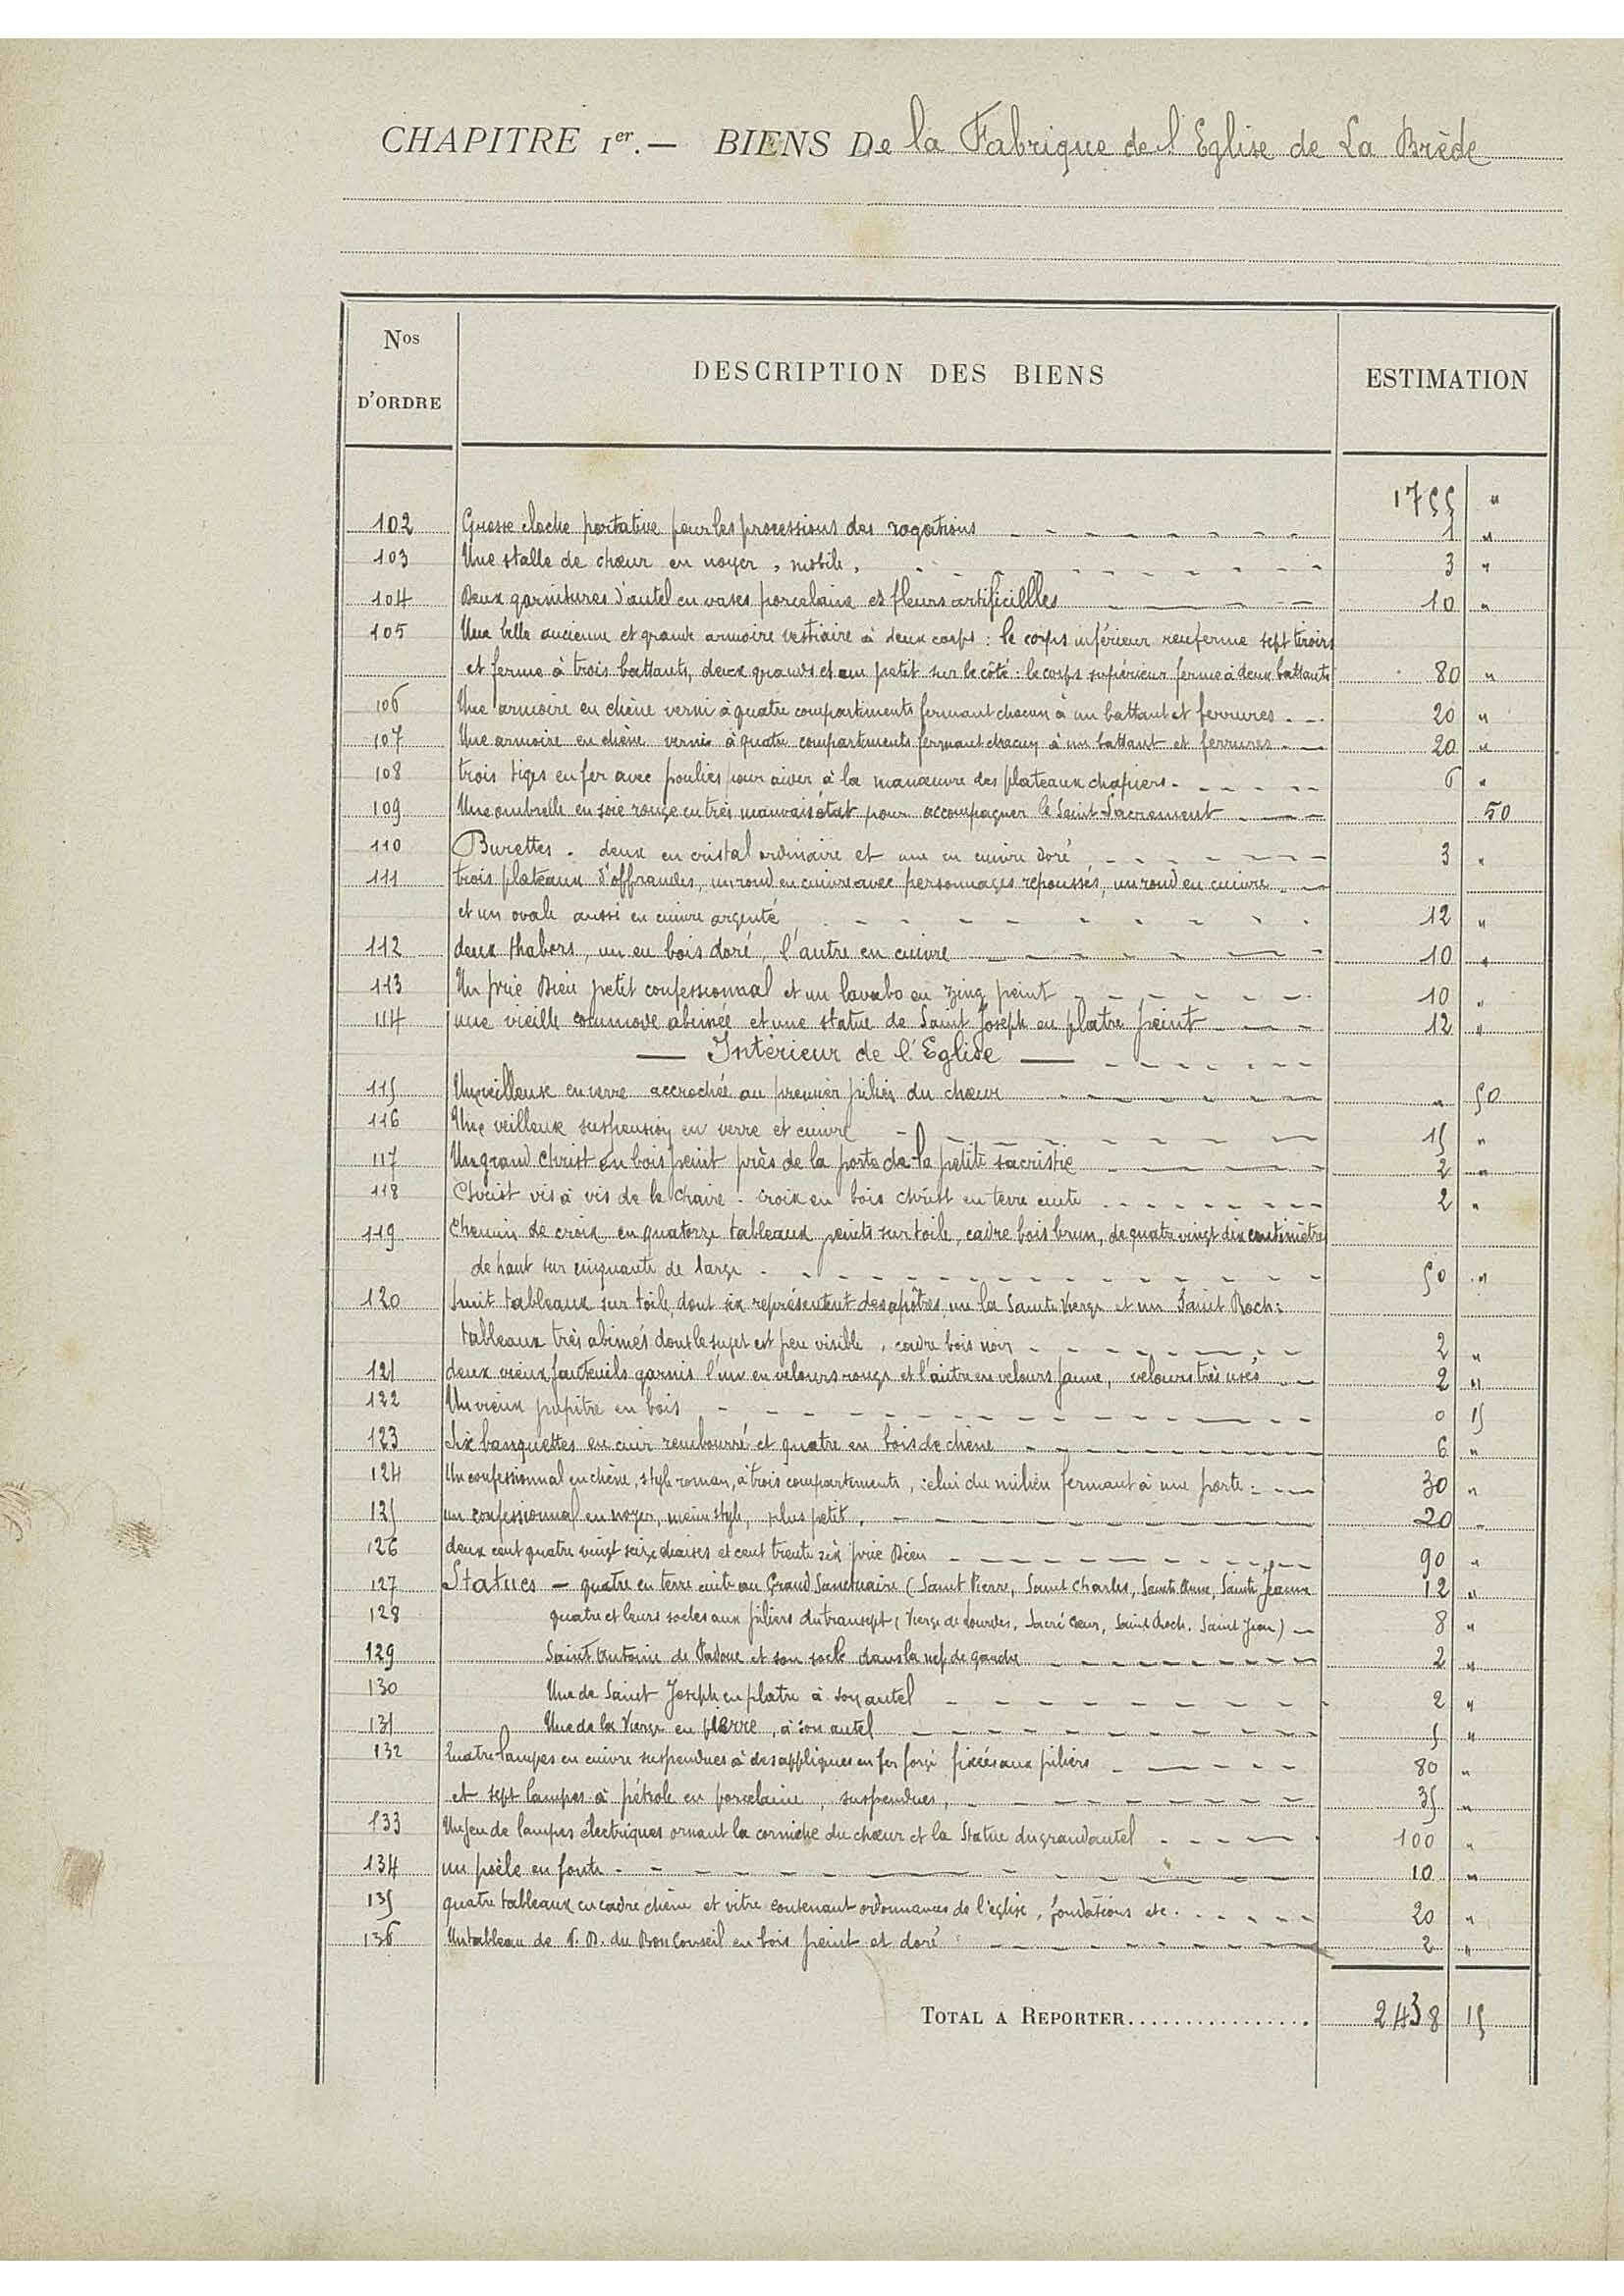 CHAPITRE Ier. — BIENS De la Fabrique de l'Eglise de La Brède
Nos D'ORDRE
DESCRIPTION DES BIENS
ESTIMATION
1755 "
102 Grosse cloche portative pour les processions des rogations 1 "
103 Une stalle de chœur en noyer, mobile, 3 "
104 Deux garnitures d'autel en vases porcelaine et fleurs artificielles 10 "
105 Une belle ancienne et grande armoire vestiaire à deux corps : le corps inférieur renferme sept tiroirs
et ferme à trois battants, deux grands et un petit sur le côté : le corps supérieur ferme à deux battants 80 "
106 Une armoire en chêne verni à quatre compartiments fermant chacun à un battant et ferrures 20 "
107 Une armoire en chêne vernis à quatre compartiments fermant chacun à un battant et ferrures 20 "
108 trois tiges en fer avec poulies pour aider à la manœuvre des plateaux chapiers 6 "
109 Une ombrelle en soie rouge en très mauvais état pour accompagner le Saint-Sacrement 50
110 Burettes. deux en cristal ordinaire et une en cuivre doré 3 "
111 trois plateaux d'offrandes, un rond en cuivre avec personnages repoussés, un rond en cuivre
et un ovale aussi en cuivre argenté 12 "
112 deux thabors, un en bois doré, l'autre en cuivre 10 "
113 Un prie Dieu petit confessionnal et un lavabo en zing peint 10 "
114 une vieille commode abimée et une statue de Saint Joseph en platre peint 12 "
— Intérieur de l'Eglise —
115 Une veilleuse en verre accrochée au premier pilier du chœur " 50
116 Une veilleuse suspension en verre et cuivre 15 "
117 Un grand Christ en bois peint près de la porte de la petite sacristie 2 "
118 Christ vis à vis de la chaire - croix en bois christ en terre cuite 2 "
119 Chemin de croix en quatorze tableaux peints sur toile, cadre bois brun, de quatre vingt dix centimètres
de haut sur cinquante de large 50 "
120 huit tableaux sur toile, dont six représentent des apôtres, un la Sainte Vierge et un Saint Roch :
tableaux très abimés dont le sujet est peu visible, cadre bois noir 2 "
121 deux vieux fauteuils garnis l'un en velours rouge et l'autre en velours jaune, velours très usés 2 "
122 Un vieux pupitre en bois 0 15
123 Six banquettes en cuir rembourré et quatre en bois de chêne 6 "
124 Un confessionnal en chêne, style roman, à trois compartiments, celui du milieu fermant à une porte 30 "
125 un confessionnal en noyer, même style, plus petit, 20 "
126 deux cent quatre vingt seize chaises et cent trente six prie Dieu 90 "
127 Statues — quatre en terre cuite au Grand Sanctuaire (Saint Pierre, Saint Charles, Sainte Anne, Sainte Jeanne 12 "
128 quatre et leurs socles aux piliers du transept (Vierge de Lourdes, Sacré Cœur, Saint Roch, Saint Jean) 8 "
129 Saint Antoine de Padoue et son socle dans la nef de gauche 2 "
130 Une de Saint Joseph en platre à son autel 2 "
131 Une de la Vierge en pierre, à son autel 5 "
132 Quatre lampes en cuivre suspendues à des appliques en fer forgé fixées aux piliers 80 "
et sept lampes à pétrole en porcelaine, suspendues, 35 "
133 Un jeu de lampes électriques ornant la corniche du chœur et la Statue du grand autel 100 "
134 un poële en fonte 10 "
135 quatre tableaux en cadre chêne et vitre contenant ordonnances de l'église, fondations etc. 20 "
136 Un tableau de N. D. du Bon Conseil en bois peint et doré 2 "
TOTAL A REPORTER 2438 15